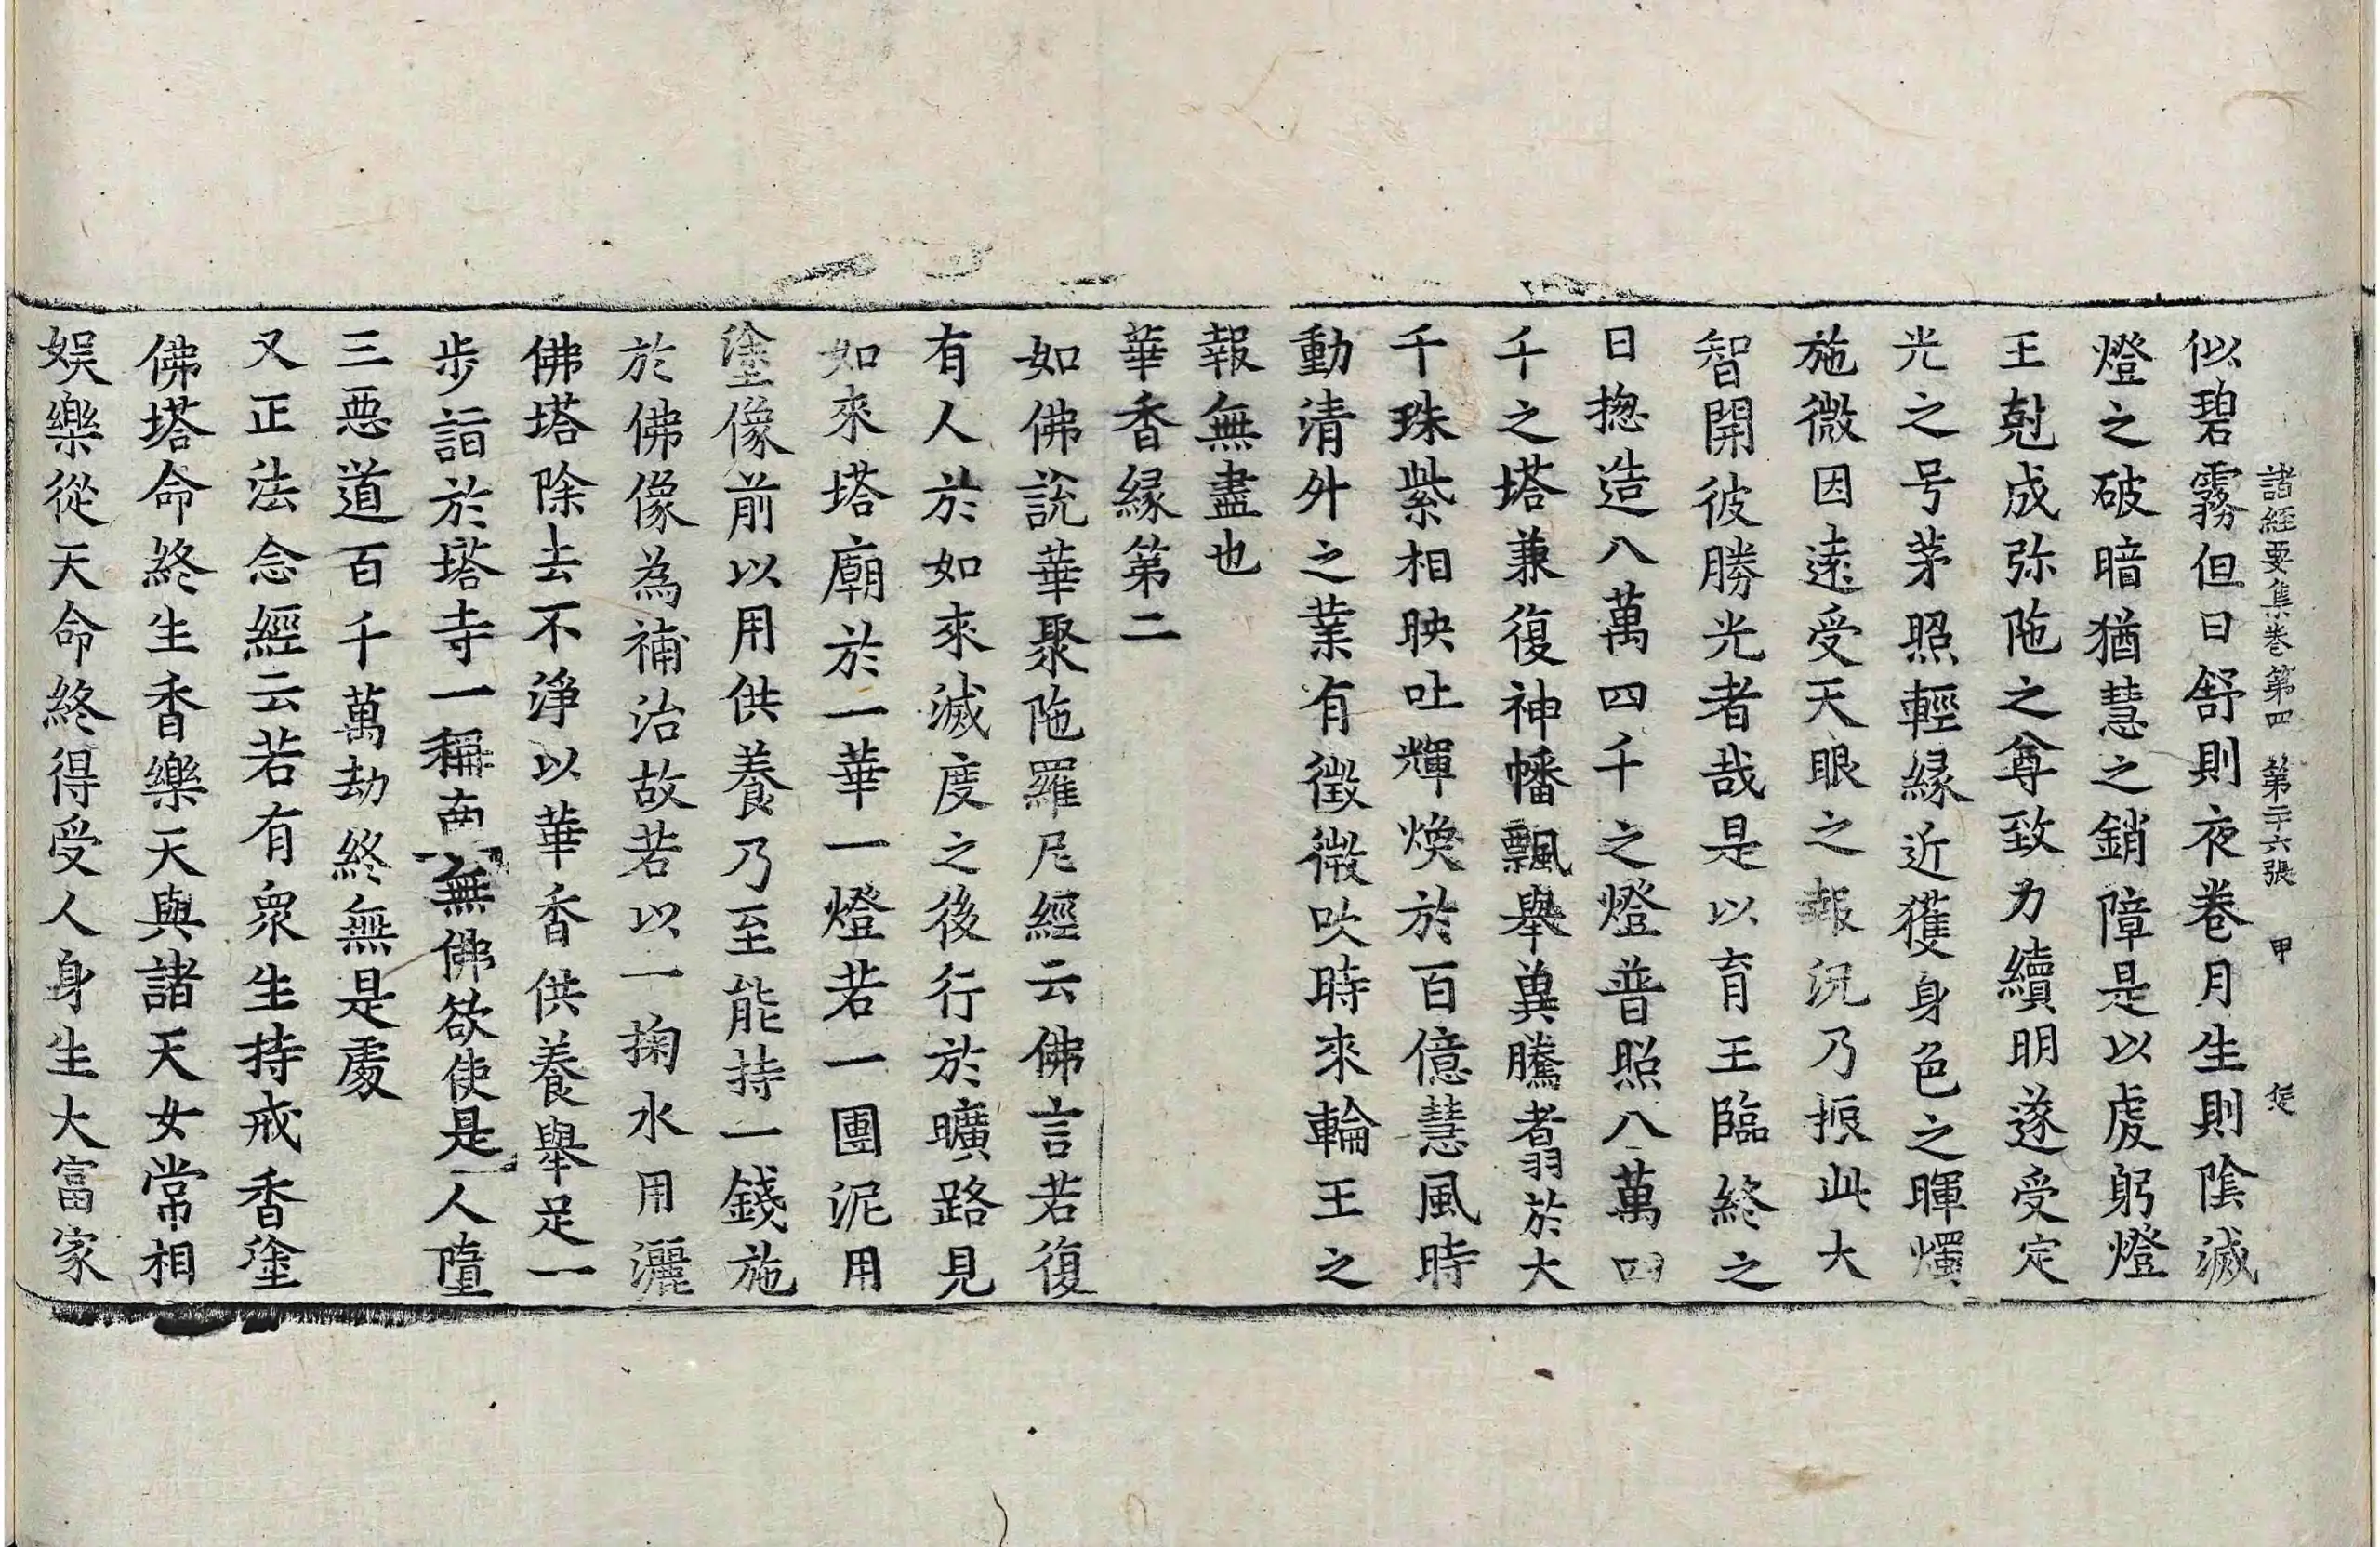 諸經要集卷第四 第二十六張 甲
似碧霧但日舒則夜卷月生則陰滅
燈之破暗猶慧之銷障是以虔躬燈
王剋成弥陁之尊致力續明遂受定
光之号茅照輕緣近獲身色之暉爥
施微因遠受天眼之報況乃振此大
智開彼勝光者哉是以育王臨終之
日揔造八萬四千之燈普照八萬四
千之塔兼復神幡飄舉冀騰翥於大
千珠縈相映吐輝煥於百億慧風時
動清外之業有徵微吹時來輪王之
報無盡也
華香緣第二
如佛說華聚陁羅尼經云佛言若復
有人於如來滅度之後行於曠路見
如來塔廟於一華一燈若一團泥用
塗像前以用供養乃至能持一錢施
於佛像為補治故若以一掬水用灑
佛塔除去不淨以華香供養舉足一
步詣於塔寺一稱南無佛欲使是人墮
三惡道百千萬劫終無是處
又正法念經云若有眾生持戒香塗
佛塔命終生香樂天與諸天女常相
娛樂從天命終得受人身生大富家